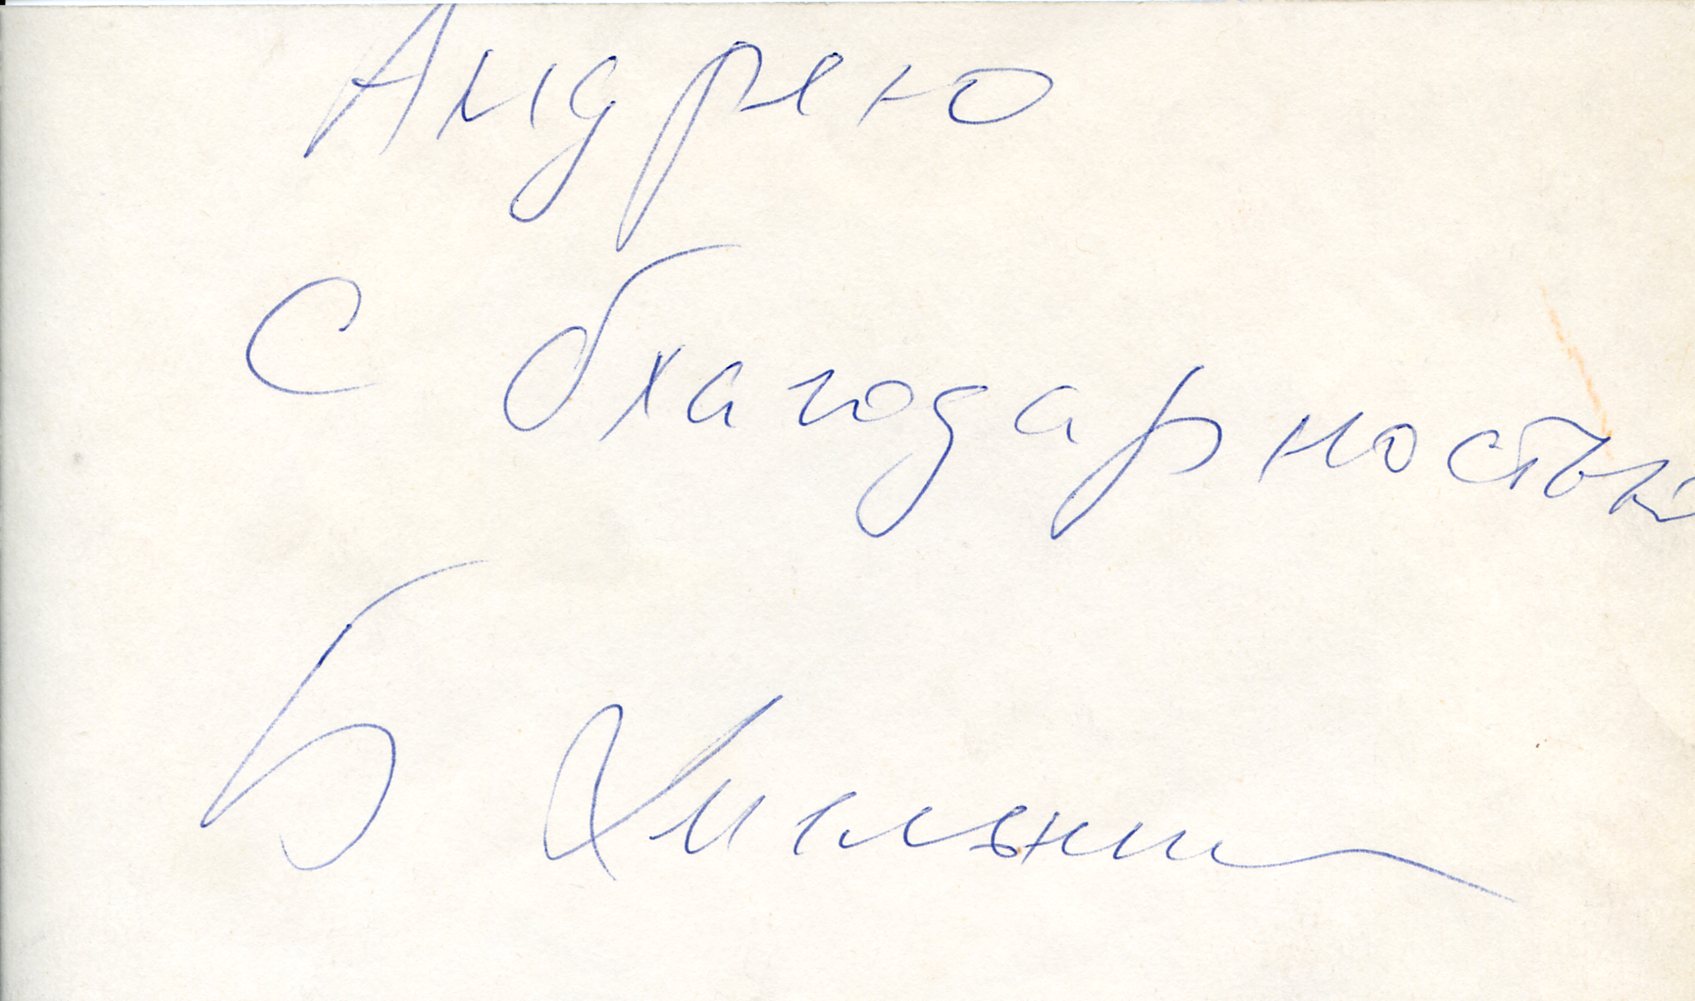 Андрею
С благодарностью
Б Хмельниц